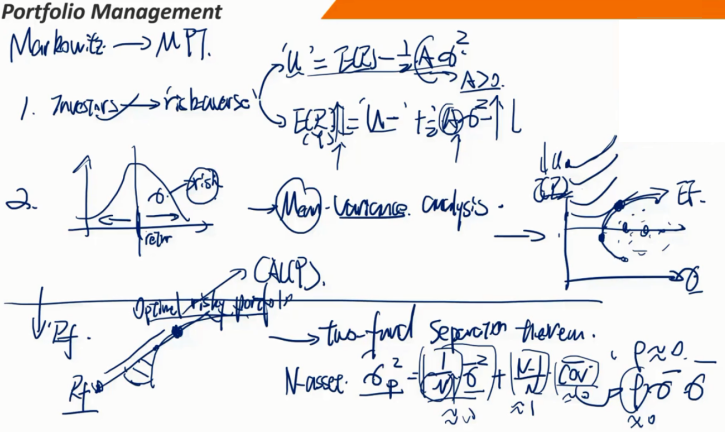 Portfolio Management
Markowitz → MPT.
'U' = E(R) - ½Aσ²
A>0.
1. Investors → risk-averse
E(R) = U + ½Aσ²
2.
σ risk
return
→ Mean-variance analysis.
EF
σ
CAL(P).
Optimal risky portfolio
Rf.
→ two-fund separation theorem.
Rf
N-asset. σp² = (1/N) σ̄² + (N-1)/N Cov ρ≈0.
≈0 ≈1 ≈0 ρ·σ̄·σ̄
≈0